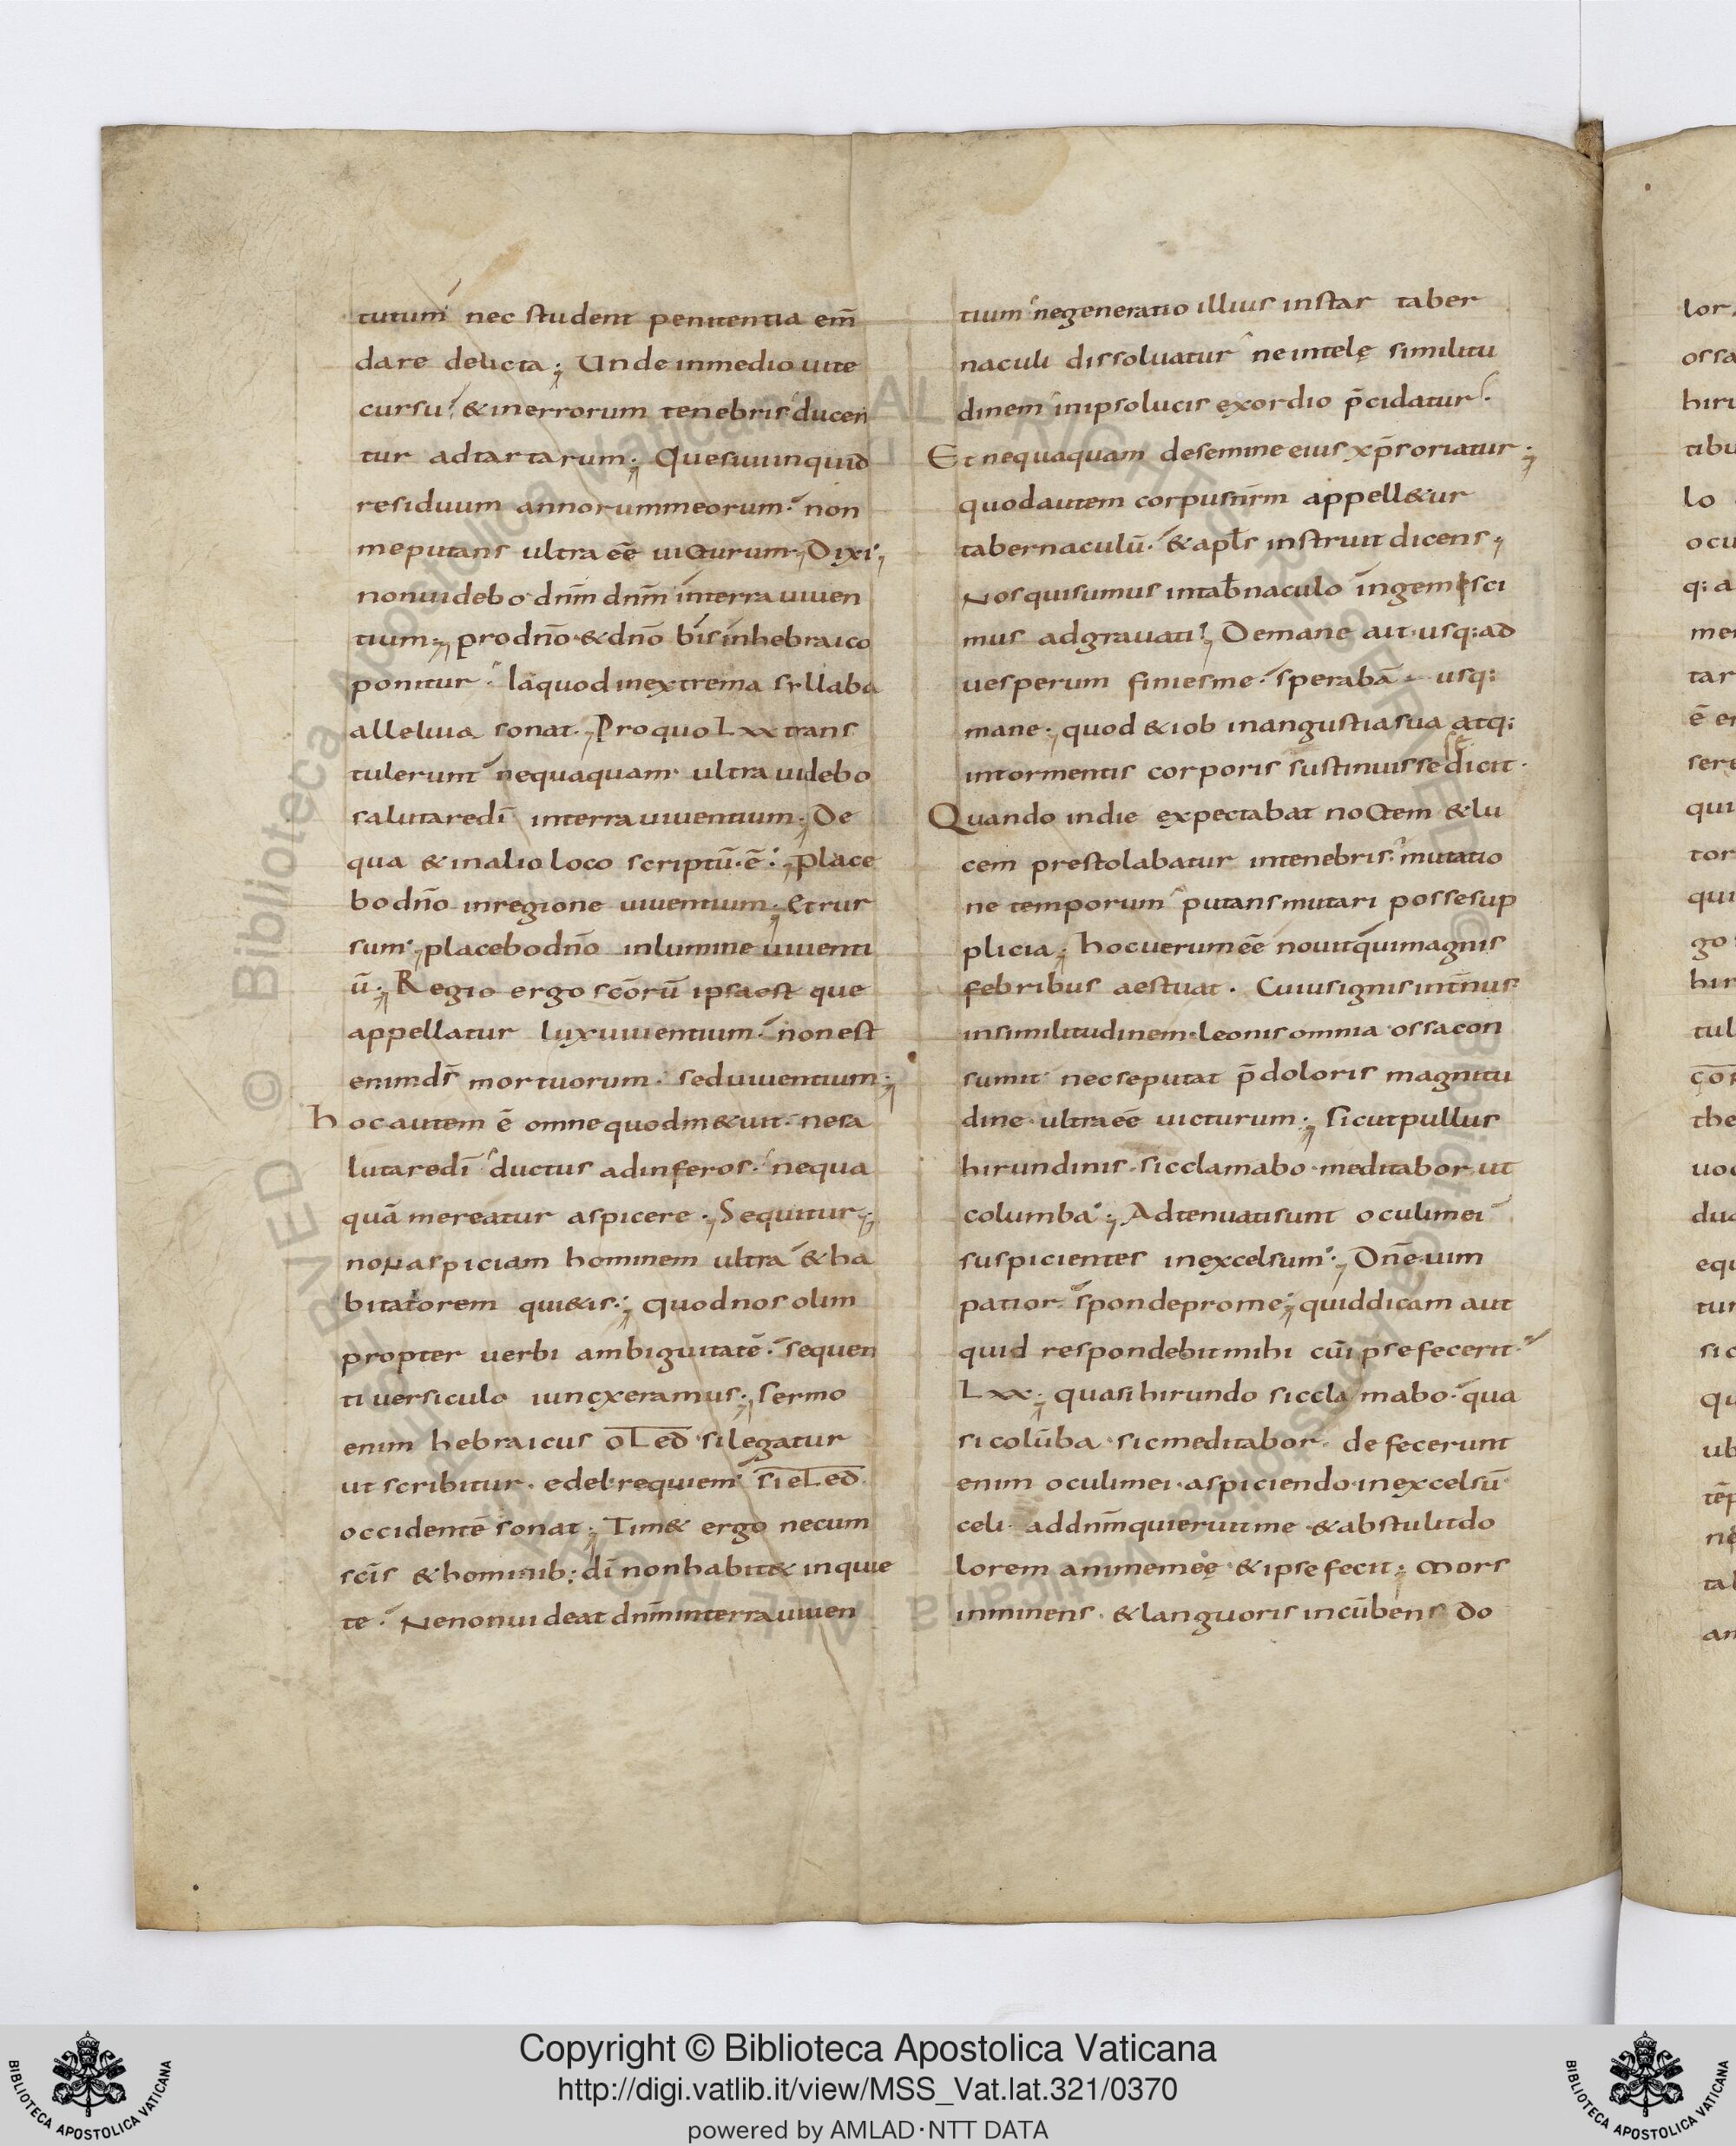 tutum nec student penitentia em̄
dare delicta; Unde inmedio uite
cursu, & inerrorum tenebris ducen
tur adtartarum; Quesiui inquid
residuum annorum meorum. non
me putans ultra eē uicturum; Dixi;
non uidebo dn̄m dn̄m interra uiuen
tium; pro dn̄o & dn̄o bis in hebraico
ponitur. Ia quod in extrema syllaba
alleluia sonat; Pro quo Lxx trans
tulerunt nequaquam ultra uidebo
salutare dī interra uiuentium; De
qua & in alio loco scriptū ē; Place
bo dn̄o in regione uiuentium; Et rur
sum; placebo dn̄o in lumine uiuenti
ū; Regio ergo scōrū ipsa est que
appellatur lux uiuentium. non est
enim ds̄ mortuorum. sed uiuentium;
hoc autem ē omne quod m&uit. ne sa
lutare dī ductus ad inferos. nequa
quā mereatur aspicere; Sequitur;
non aspiciam hominem ultra & ha
bitatorem qui&is; quod nos olim
propter uerbi ambiguitatē. sequen
ti uersiculo iuncxeramus; Sermo
enim hebraicus oLed si legatur
ut scribitur. edel requiem. si eLed
occidentē sonat; Tim& ergo necum
scīs & hominib; dī non habit& in quie
te. Ne non uideat dn̄m interra uiuen
tium ne generatio illius instar taber
naculi dissoluatur ne in telę similitu
dinem in ipso lucis exordio p̄cidatur.
Et nequaquam de semine eius xp̄s oriatur;
quod autem corpus nr̄m appell&ur
tabernaculū. & apłs instruit dicens;
Nos qui sumus in tab̄naculo ingemisci
mus adgrauati; De mane ait usq: ad
uesperum finies me. sperabā usq:
mane; quod & iob in angustia sua atq:
in tormentis corporis sustinuisse se dicit.
Quando in die expectabat noctem & lu
cem prestolabatur in tenebris. mutatio
ne temporum putans mutari posse sup
plicia; hoc uerum eē nouit qui magnis
febribus aestuat. Cuius ignis int̄nus
in similitudinem leonis omnia ossa con
sumit nec se putat p̄ doloris magnitu
dine ultra eē uicturum; Sicut pullus
hirundinis. sic clamabo. meditabor ut
columba; Adtenuati sunt oculi mei
suspicientes in excelsum; Dn̄e uim
patior. sponde pro me; quid dicam aut
quid respondebit mihi cū ipse fecerit.
Lxx; quasi hirundo sic clamabo. qua
si colūba sic meditabor. defecerunt
enim oculi mei aspiciendo in excelsū
celi. ad dn̄m qui eruit me & abstulit do
lorem anime meę & ipse fecit; Mors
inminens. & languoris incūbens do